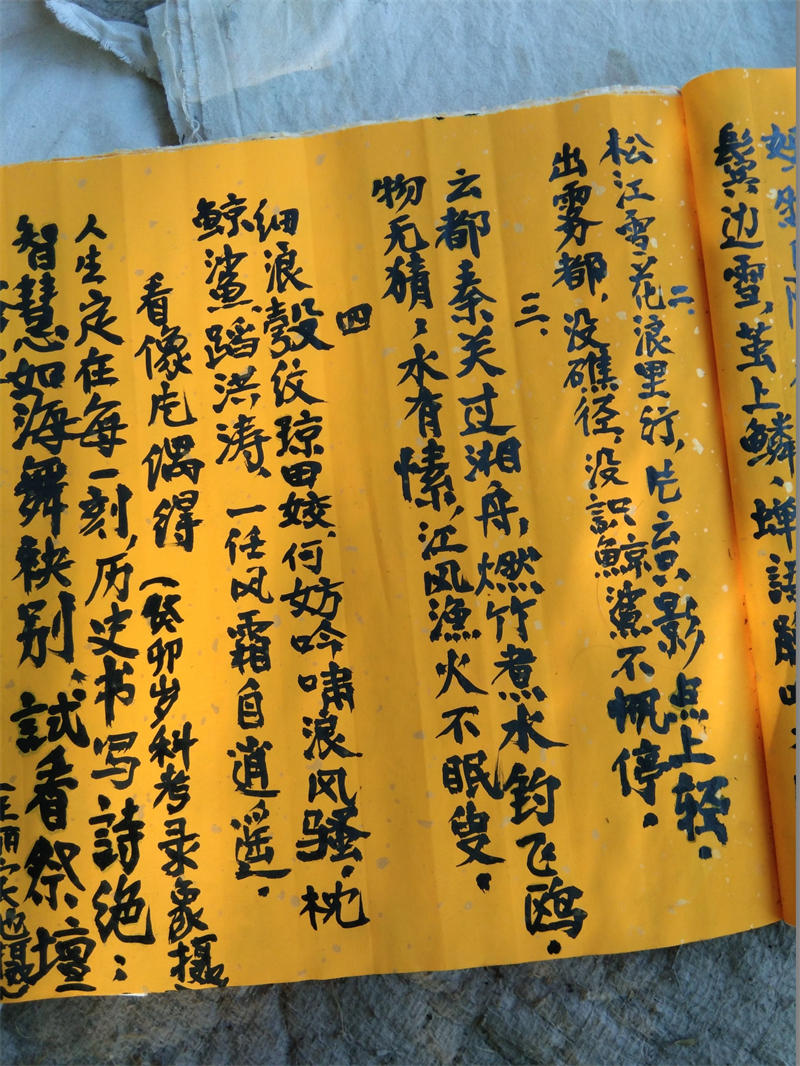 鬓边雪，茧上鳞，蝉语
二、
松江雪花浪里行，片云只影点上轻。
出雾都，没礁径，没识鲸鲨不怳停。
三、
云都秦关过湘舟，燃竹煮水钓飞鸥。
物无猜，水有愫，江风渔火不眠叟。
四
细浪縠纹琼田姣，何妨吟啸浪风骚，枕
鲸鲨蹈洪涛，一任风霜自逍遥。
看像片偶得（癸卯岁科考录象摄
人生定在每一刻，历史书写诗绝：
智慧如海舞袂别，試看祭壇